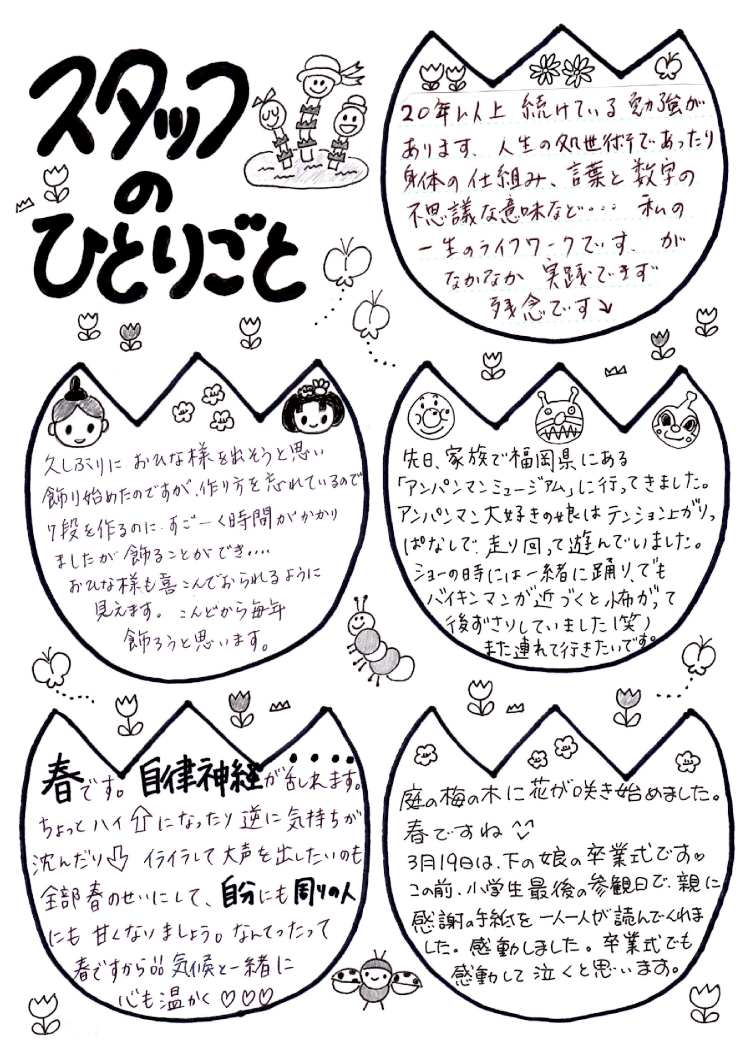 スタッフ
の
ひとりごと
20年以上 続けている 勉強が
あります、人生の処世術であったり
身体の仕組み、言葉と数字の
不思議な意味など・・・ 私の
一生のライフワークです、が
なかなか 実践できず
残念です↘
久しぶりに おひな様を出そうと思い
飾り始めたのですが、作り方を忘れているので
7段を作るのに、すご〜く時間がかかり
ましたが 飾ることができ・・・・
おひな様も喜こんでおられるように
見えます。 こんどから毎年
飾ろうと思います。
先日、家族で福岡県にある
「アンパンマンミュージアム」に行ってきました。
アンパンマン大好きの娘はテンション上がりっ
ぱなしで、走り回って遊んでいました。
ショーの時には一緒に踊り、でも
バイキンマンが近づくと怖がって
後ずさりしていました(笑)
また連れて行きたいです。
春です。自律神経が乱れます。
ちょっとハイ⇧になったり 逆に気持ちが
沈んだり⇩ イライラして大声を出したいのも
全部春のせいにして、自分にも周りの人
にも 甘くなりましょう。なんてったって
春ですから!! 気候と一緒に
心も温かく♡♡♡
庭の梅の木に花が咲き始めました。
春ですね
3月19日は、下の娘の卒業式です♡
この前、小学生最後の参観日で、親に
感謝の手紙を一人一人が読んでくれま
した。感動しました。卒業式でも
感動して泣くと思います。